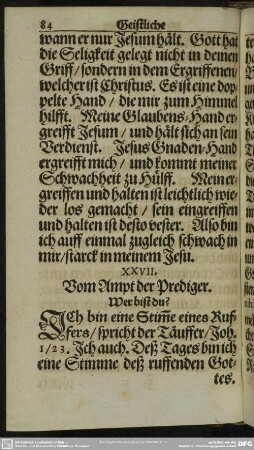 84 Geistliche
wann er nur Jesum hält. Gott hat
die Seligkeit gelegt nicht in deinen
Griff / sondern in dem Ergriffenen /
welcher ist Christus. Es ist eine dop-
pelte Hand / die mir zum Himmel
hilfft. Meine Glaubens-Hand er-
greifft Jesum / und hält sich an sein
Verdienst. Jesus Gnaden-Hand
ergreifft mich / und kommt meiner
Schwachheit zu Hülff. Mein er-
greiffen und halten ist leichtlich wie-
der los gemacht / sein eingreiffen
und halten ist desto vester. Also bin
ich auff einmal zugleich schwach in
mir / starck in meinem Jesu.
XXVII.
Vom Ampt der Prediger.
Wer bist du?
ICh bin eine Stim̃e eines Ruf-
fers / spricht der Täuffer / Joh.
1/23. Ich auch. Deß Tages bin ich
eine Stimme deß ruffenden Got-
tes.
DFG